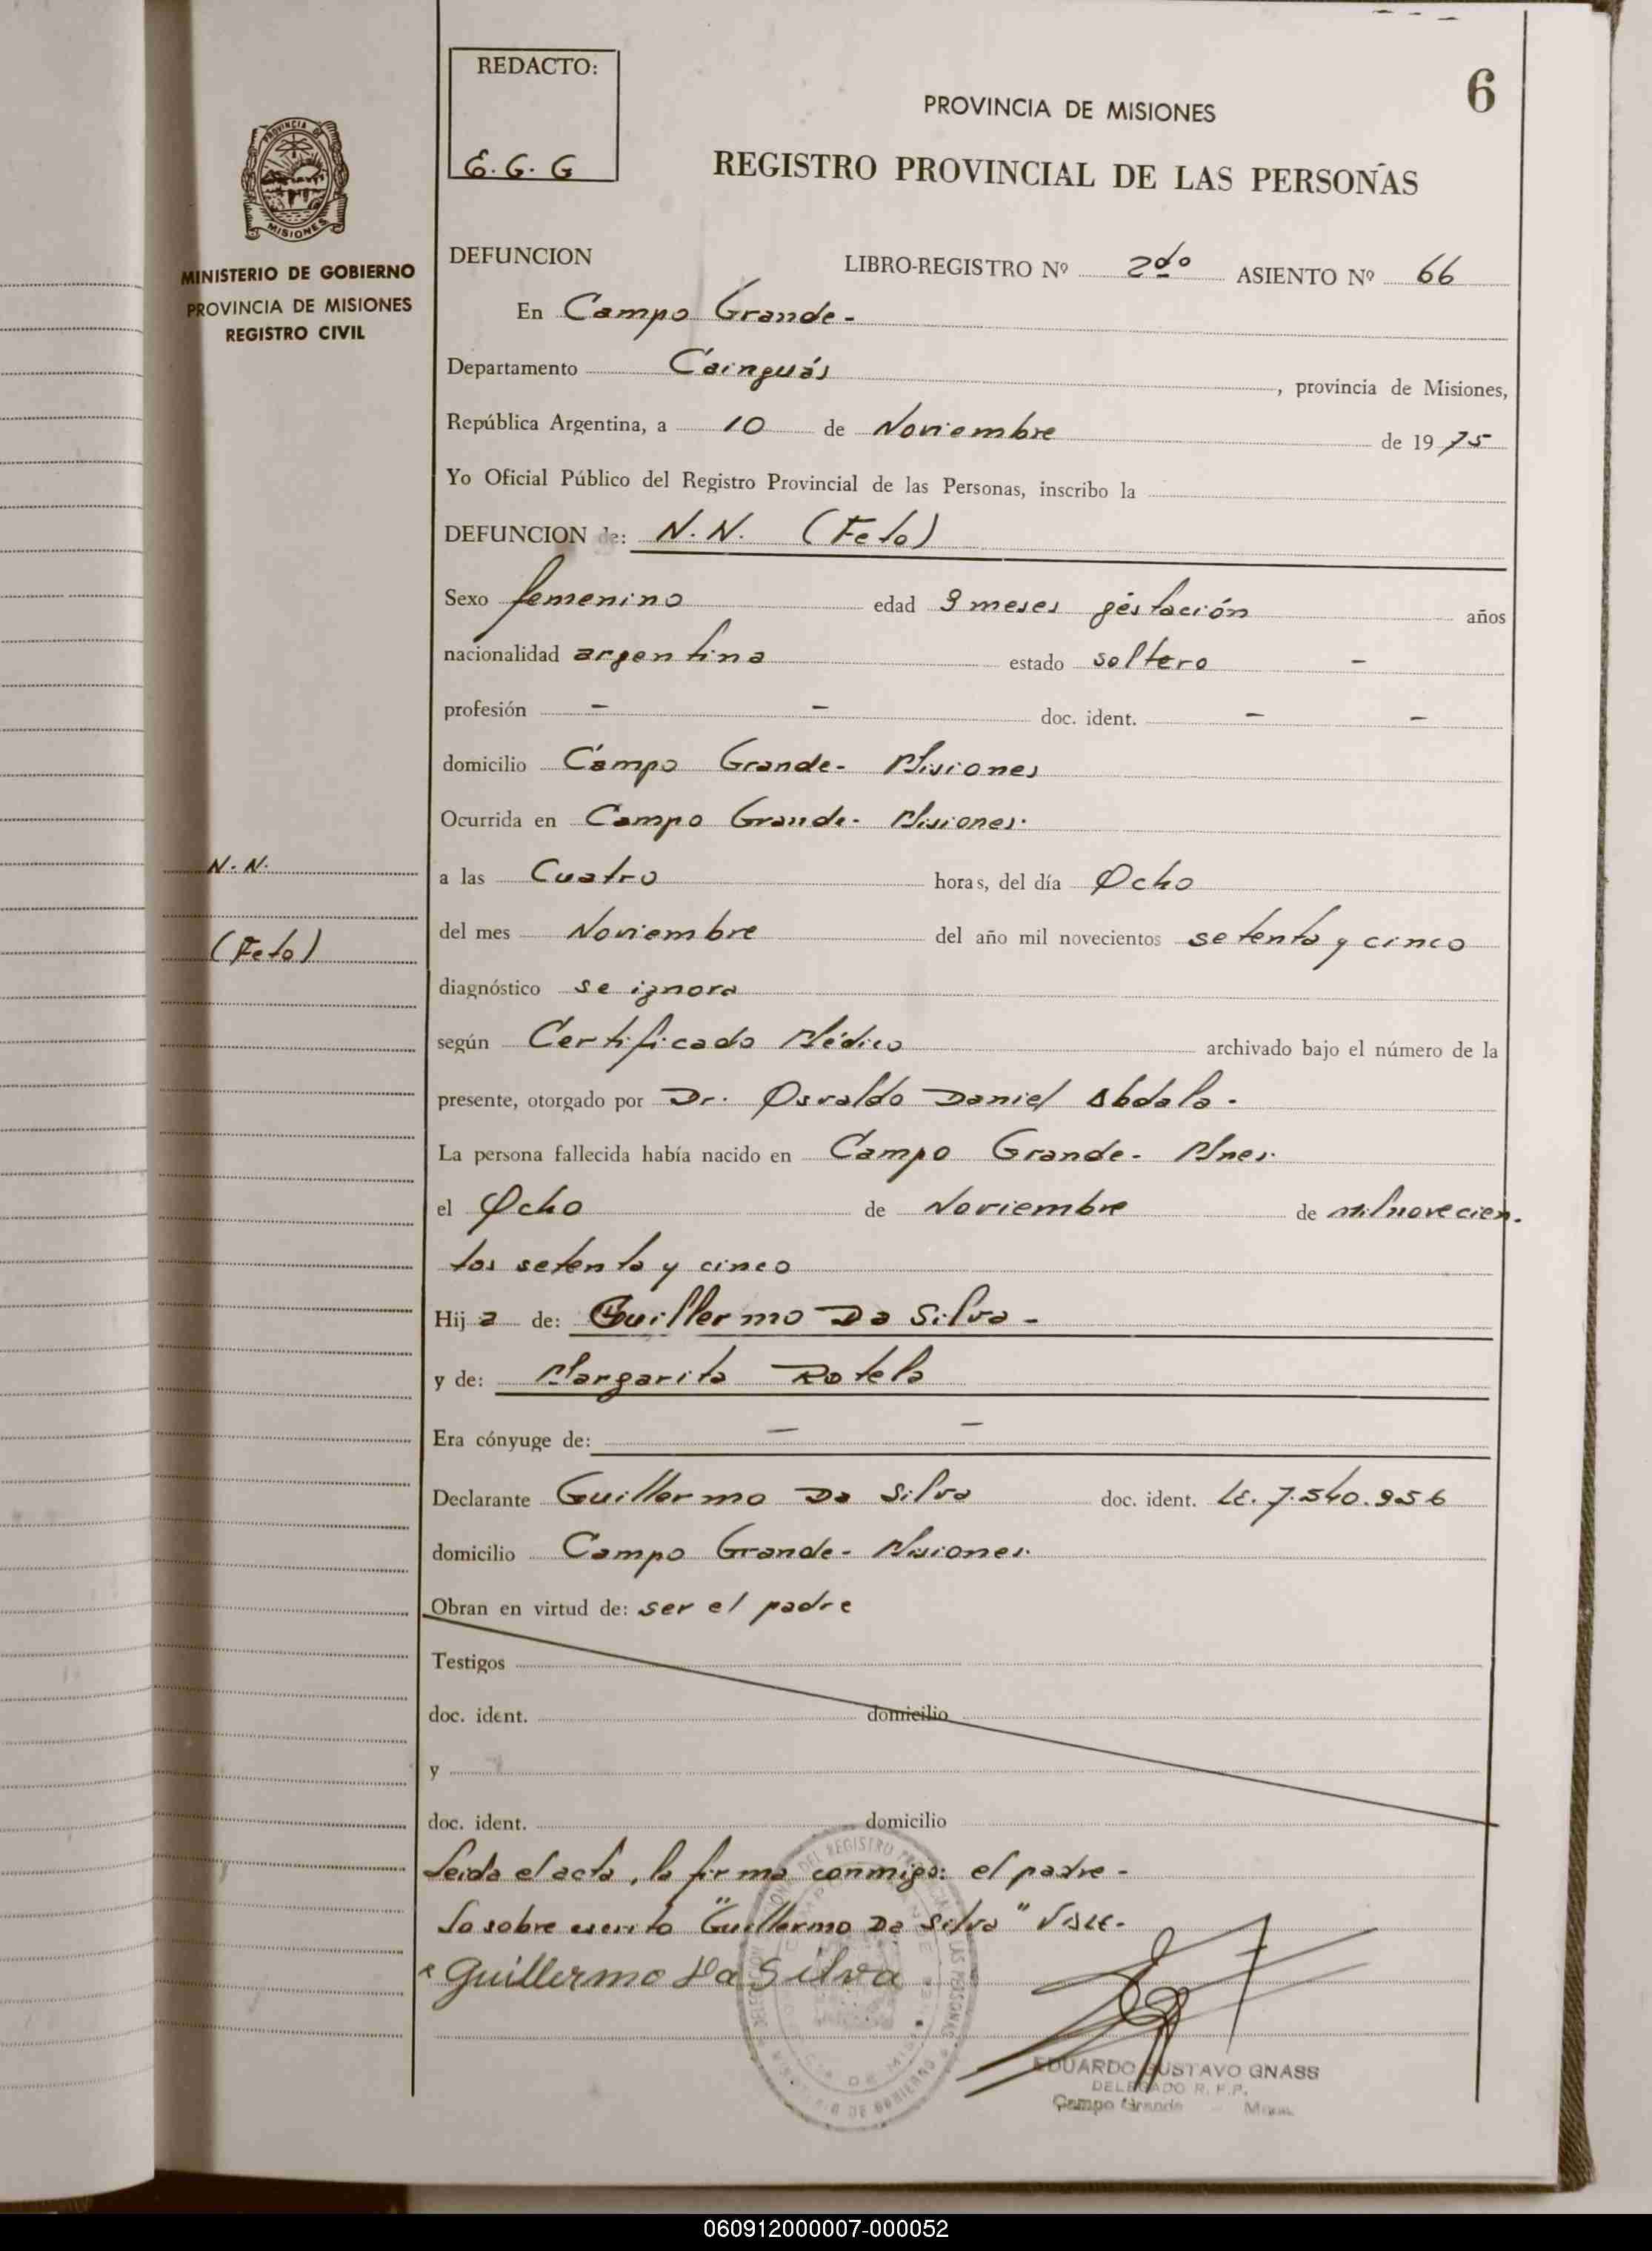 REDACTO:
E. G. G
6
PROVINCIA DE MISIONES
REGISTRO PROVINCIAL DE LAS PERSONAS
PROVINCIA DE
MISIONES
MINISTERIO DE GOBIERNO
PROVINCIA DE MISIONES
REGISTRO CIVIL
DEFUNCION LIBRO-REGISTRO Nº 2do ASIENTO Nº 66
En Campo Grande-
Departamento Cainguás, provincia de Misiones,
República Argentina, a 10 de Noviembre de 1975
Yo Oficial Público del Registro Provincial de las Personas, inscribo la
DEFUNCION de: N.N. (Feto)
Sexo femenino edad 9 meses géstación años
nacionalidad argentina estado soltero -
profesión - - doc. ident. - -
domicilio Campo Grande- Misiones
Ocurrida en Campo Grande- Misiones.
N. N.
a las Cuatro horas, del día Ocho
(Feto)
del mes Noviembre del año mil novecientos setenta y cinco
diagnóstico se ignora
según Certificado Médico archivado bajo el número de la
presente, otorgado por Dr. Osvaldo Daniel Abdala-
La persona fallecida había nacido en Campo Grande- Mnes.
el Ocho de Noviembre de mil novecien-
tos setenta y cinco
Hija de: Guillermo Da Silva-
y de: Margarita Rotela
Era cónyuge de: - -
Declarante Guillermo Da Silva doc. ident. LE. 7.540.956
domicilio Campo Grande- Misiones.
Obran en virtud de: ser el padre
Testigos
doc. ident. domicilio
y
doc. ident. domicilio
Leida el acta, la firma conmigo: el padre-
Lo sobre escrito "Guillermo Da Silva" Vale-
Guillermo Da Silva
EDUARDO GUSTAVO GNASS
DELEGADO R. P. P.
Campo Grande - Mnes.
060912000007-000052